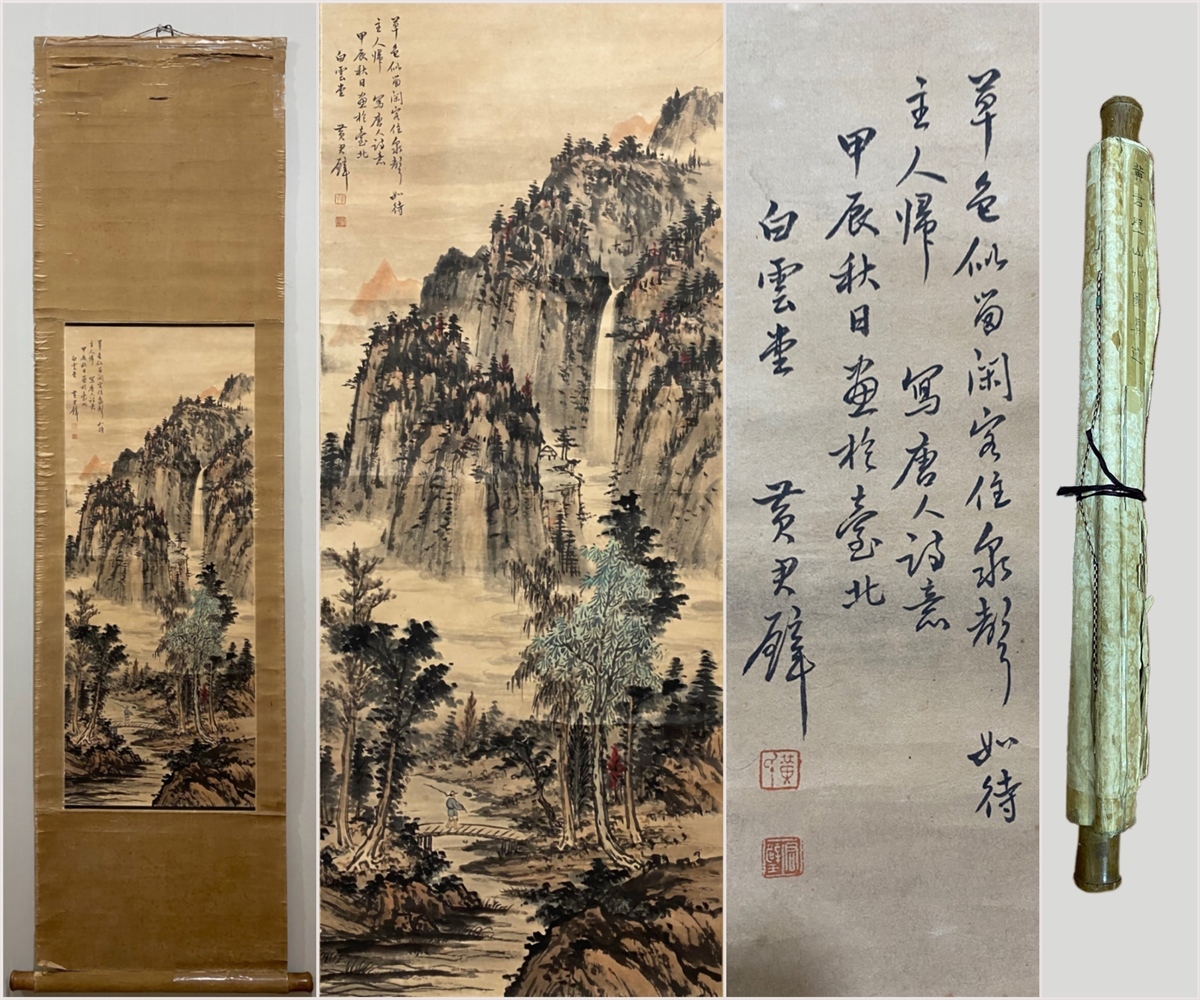 草色似留閑客住泉聲如待
主人歸 寫唐人詩意
甲辰秋日畫於臺北
白雲堂 黃君璧
君璧
黃君璧山水圖真迹